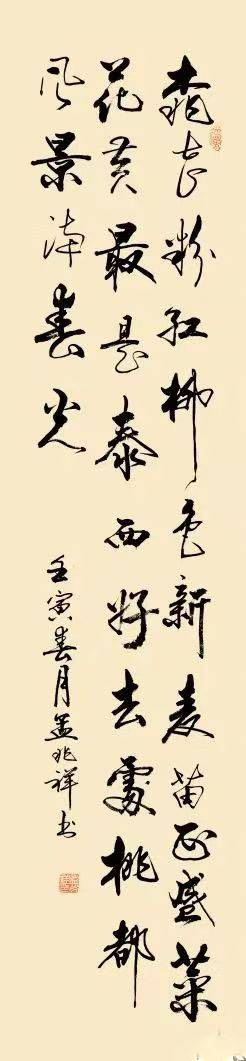 桃杏粉红柳色新麦苗正盛菜
花黄最是泰西好去處桃都
风景满春光
壬寅春月孟兆祥书